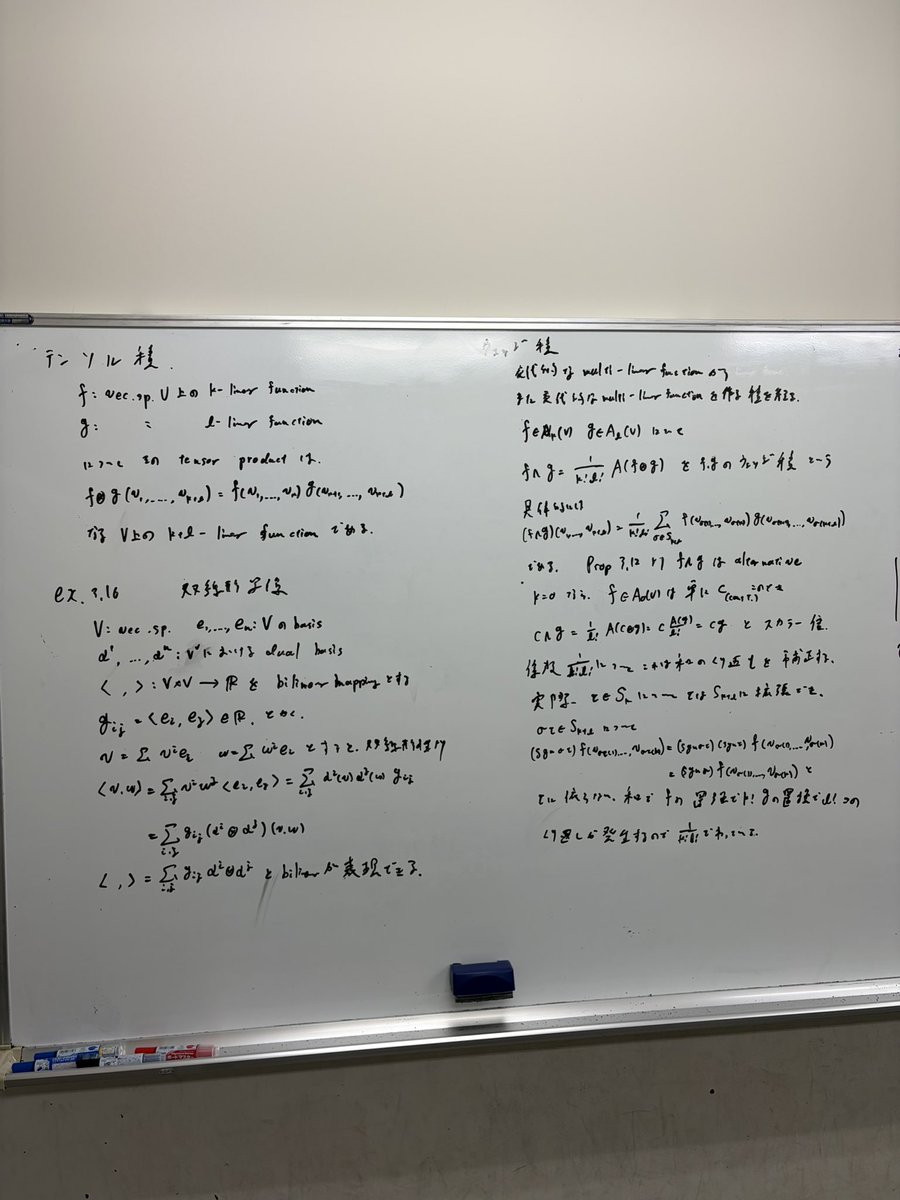 テンソル積.
f: vec.sp. V上の k-linear function
g: 〃 l-linear function
について その tensor product は.
f⊗g(v₁,...,v_{k+l}) = f(v₁,...,v_k) g(v_{k+1},...,v_{k+l})
なる V上の k+l-linear function である.
ex. 3.16 双線形写像
V: vec.sp. e₁,...,eₙ: Vの basis
α¹,...,αⁿ: V^∨における dual basis
< , >: V×V → ℝ を bilinear mapping とする
g_{ij} = <e_i, e_j> ∈ ℝ. とおく.
v = Σ v^i e_i w = Σ w^i e_i とすると. 双線形性より
<v,w> = Σ_{i,j} v^i w^j <e_i, e_j> = Σ_{i,j} α^i(v) α^j(w) g_{ij}
= Σ_{i,j} g_{ij} (α^i⊗α^j)(v,w)
< , > = Σ_{i,j} g_{ij} α^i⊗α^j と bilinear が表現できる.
ウェッジ積
交代的な multi-linear function から
また交代的な multi-linear function を作る積を考える.
f∈A_k(V) g∈A_l(V) について
f∧g = \frac{1}{k!l!} A(f⊗g) を f,gの ウェッジ積 という
具体的には
(f∧g)(v₁,...,v_{k+l}) = \frac{1}{k!l!} Σ_{σ∈S_{k+l}} f(v_{σ(1)},...,v_{σ(k)}) g(v_{σ(k+1)},...,v_{σ(k+l)})
である. Prop 3.12 より f∧g は alternative
k=0 なら. f∈A₀(V) は 単に C (const.) なので
c∧g = \frac{1}{l!} A(c⊗g) = c \frac{A(g)}{l!} = cg と スカラー倍.
係数 \frac{1}{k!l!} について これは和のくり返しを補正する.
実際. τ∈S_k について τは S_{k+l}に拡張できる.
στ∈S_{k+l} について
(sgn στ) f(v_{στ(1)},...,v_{στ(k)}) = (sgn στ)(sgn τ) f(v_{σ(1)},...,v_{σ(k)})
= (sgn σ) f(v_{σ(1)},...,v_{σ(k)}) と
τに依らない. 和で fの置換でk! gの置換でl! つの
くり返しが発生するので \frac{1}{k!l!} でわっている.